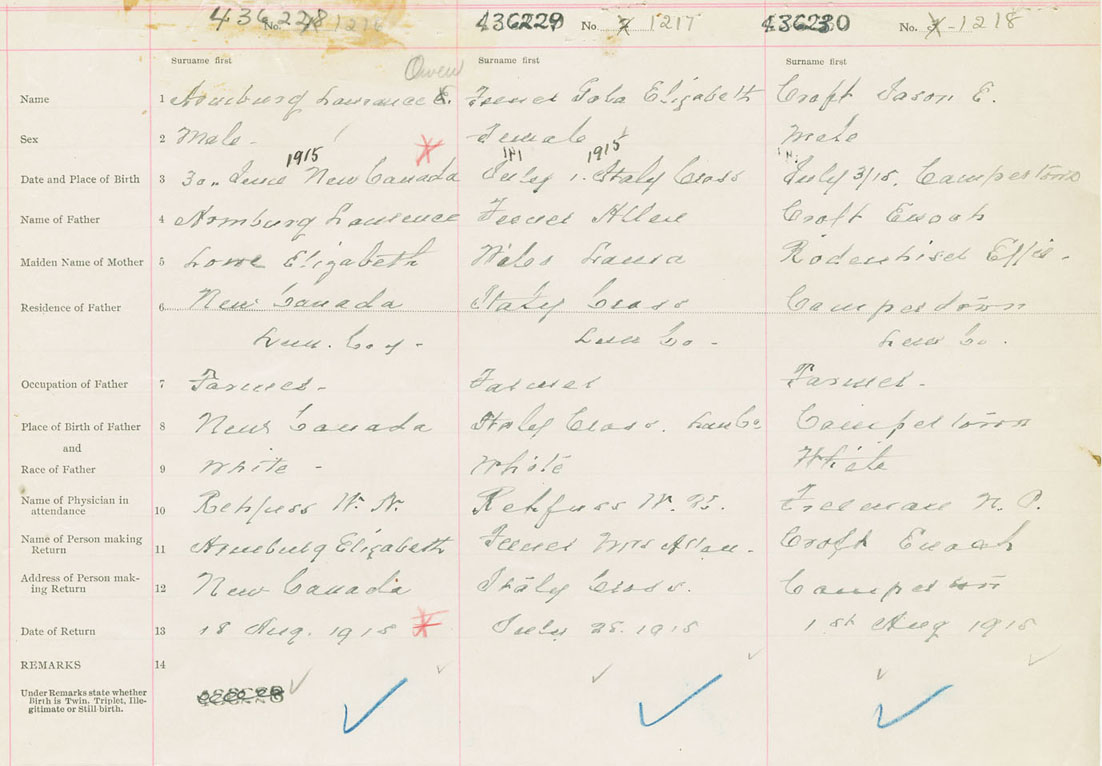 436228 No. 4 1216 436229 No. 1217 436230 No. 1218
Surname first Surname first Surname first
Owen
Name 1 Armburg Laurance Feener Elizabeth Croft Jason E.
Sex 2 Male - Female Male
1915 1915
Date and Place of Birth 3 30 June New Canada July 1. Italy Cross July 3/15. Camperdown
Name of Father 4 Armburg Laurence Feener Allen Croft Enoch
Maiden Name of Mother 5 Lowe Elizabeth Wiles Laura Rodenhiser Effie.
Residence of Father 6 New Canada Italy Cross Camperdown
Lun. Co. Lun Co - Lun Co.
Occupation of Father 7 Farmer - Farmer Farmer -
Place of Birth of Father 8 New Canada Italy Cross. Lun Co Camperdown
and
Race of Father 9 White - White White
Name of Physician in
attendance 10 Rehfuss W. N. Rehfuss W. Freeman N. P.
Name of Person making
Return 11 Armburg Elizabeth Feener Mrs Allan. Croft Enoch
Address of Person mak-
ing Return 12 New Canada Italy Cross. Camperdown
Date of Return 13 18 Aug. 1915 July 28. 1915 1st Aug 1915
REMARKS 14
Under Remarks state whether
Birth is Twin, Triplet, Ille-
gitimate or Still-birth.